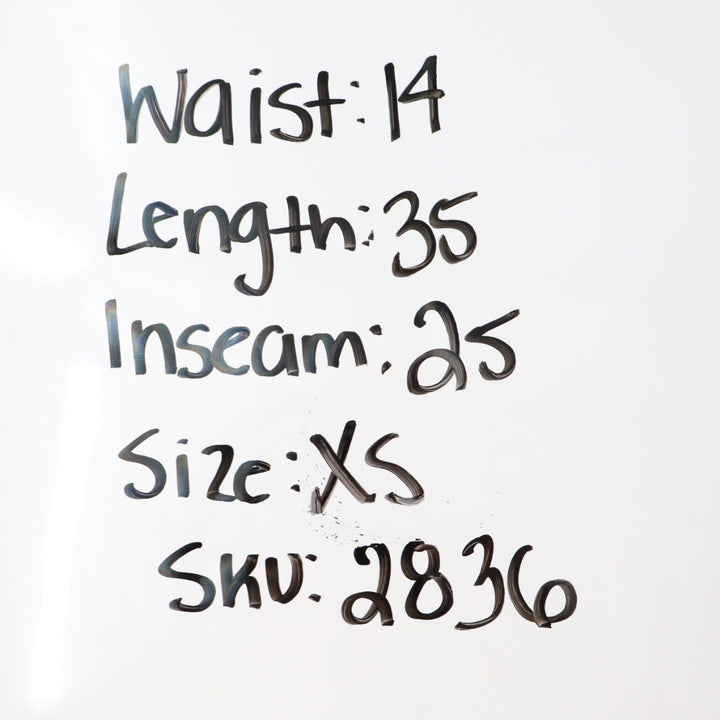 Waist: 14
Length: 35
Inseam: 25
Size: XS
SKU: 2836